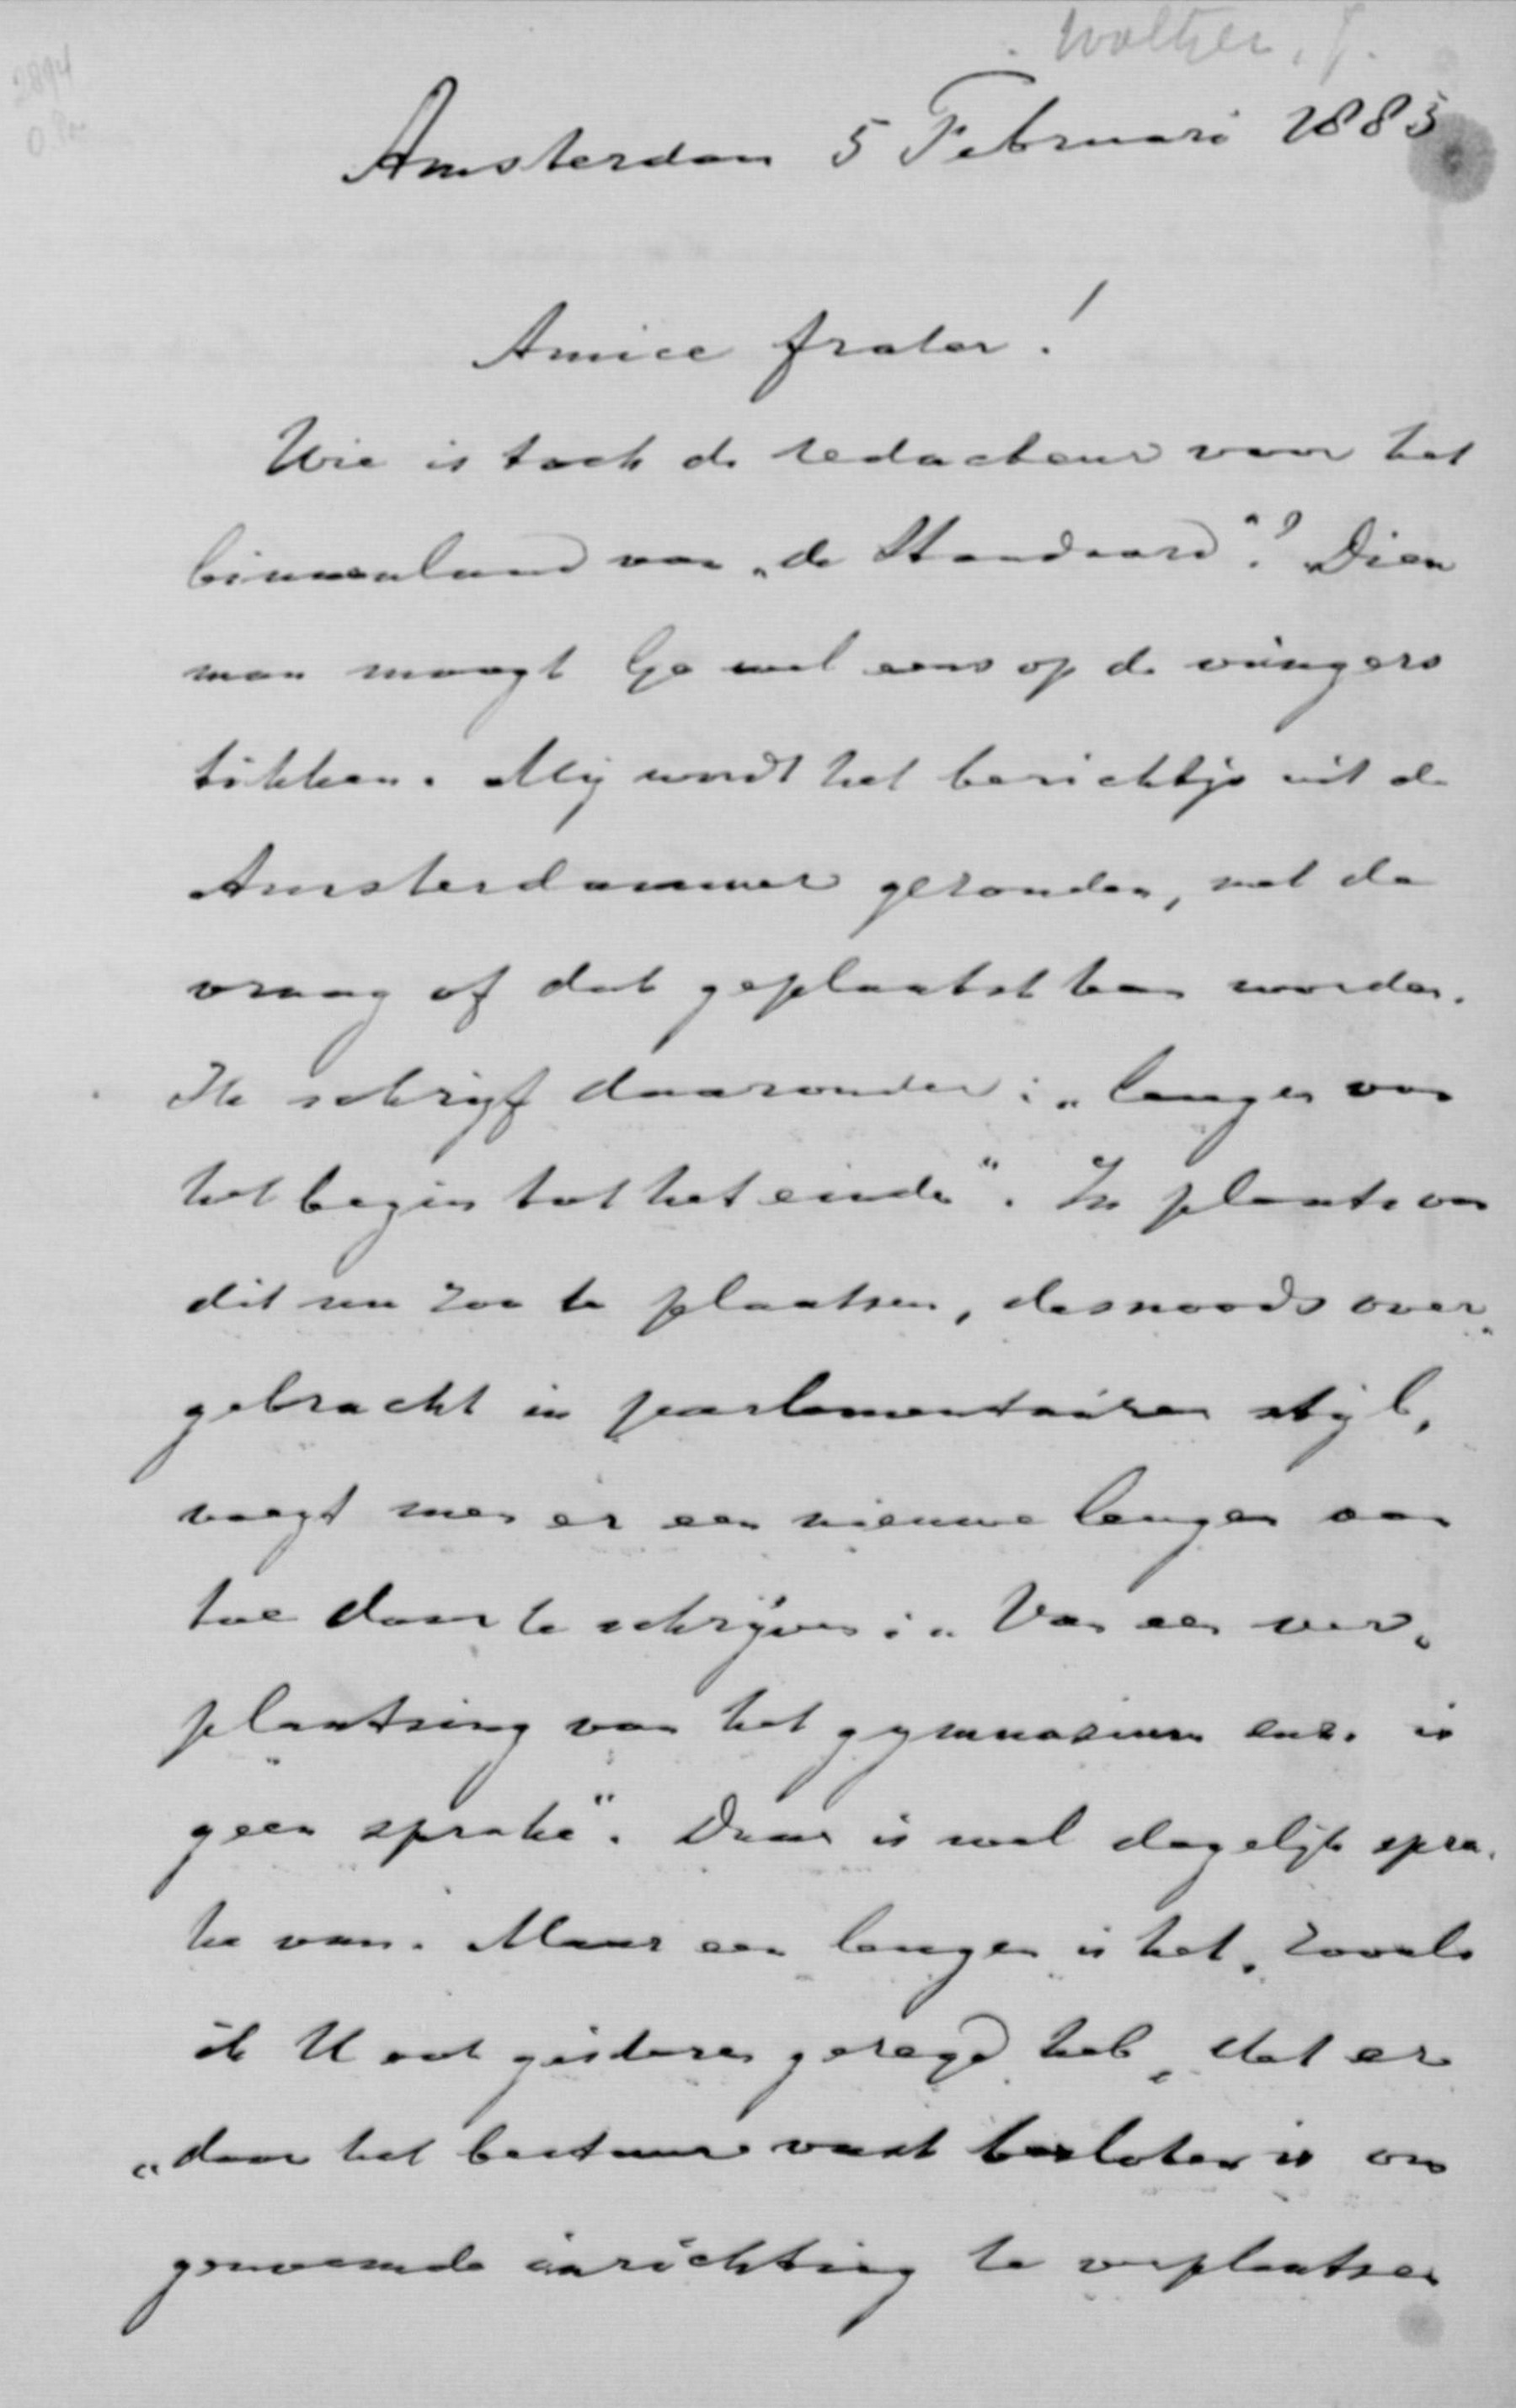 Woltjer, J.
2894
Amsterdam 5 Februari 1885
Amice frater!
Wie is toch de redacteur voor het
binnenland van „de Standaard"? Dien
man moogt Ge wel eens op de vingers
tikken. Mij wordt het berichtje uit de
Amsterdammer gezonden, met de
vraag of dat geplaatst kan worden.
Ik schrijf daaronder: „leugen van
het begin tot het einde". In plaats van
dit nu zoo te plaatsen, desnoods over„
gebracht in parlementairen stijl,
voegt men er een nieuwe leugen aan
toe door te schrijven: „Van een ver„
plaatsing van het gymnasium enz. is
geen sprake". Daar is wel degelijk spra„
ke van. Maar een leugen is het, zooals
ik U ook gisteren gezegd heb, dat er
„door het bestuur vast besloten is om
genoemde inrichting te verplaatsen